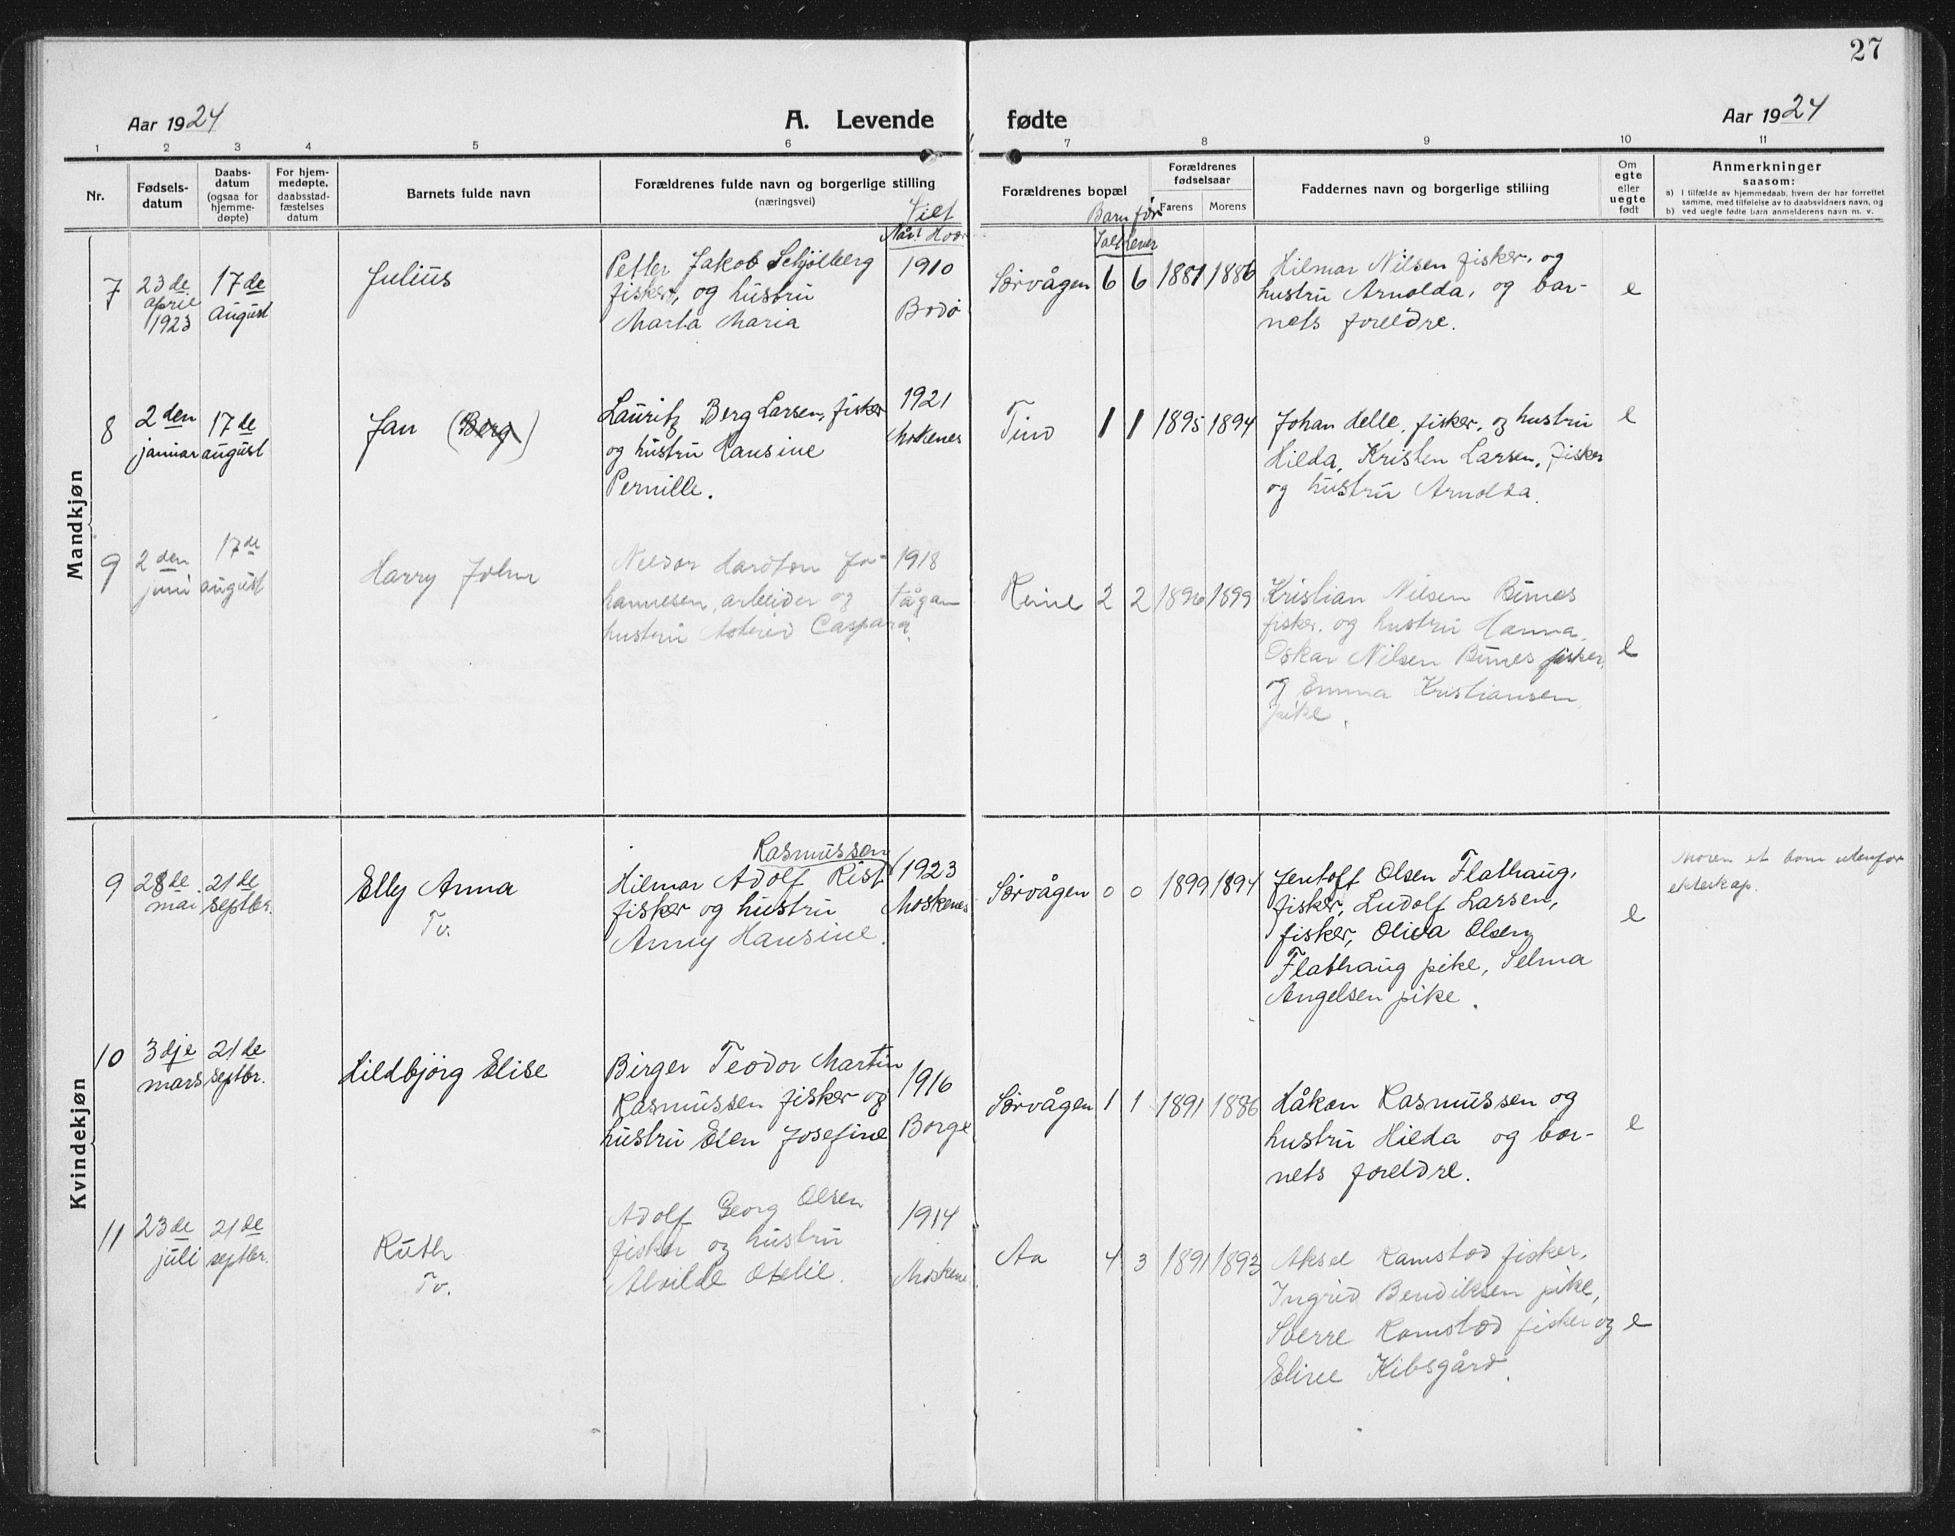 27
Aar 1924
A. Levende
fødte
Aar 1924
1 2 3 4 5 6 7 8 9 10 11
Nr.
Fødsels-
datum
Daabs-
datum
(ogsaa for
hjemme-
døpte)
For hjem-
medøpte,
daabsstad-
fæstelses
datum
Barnets fulde navn
Forældrenes fulde navn og borgerlige stilling
(næringsvei)
Viet
Når? Hvor
Forældrenes bopæl
Barn før
Ialt Lever
Forældrenes
fødselsaar
Farens Morens
Faddernes navn og borgerlige stilling
Om
egte
eller
uegte
født
Anmerkninger
saasom:
a) I tilfælde av hjemmedaab, hvem der har forrettet
samme, med tilføielse av to daabsvidners navn, og
b) ved uegte fødte barn anmelderens navn m. v.
Mandkjøn
7
23de
april
1923
17de
august
Julius
Petter Jakob Schjølberg
fisker, og hustru
Marta Maria
1910
Bodø
Sørvågen 6 6 1881 1886
Hilmar Nilsen fisker, og
hustru Arnolda, og bar-
nets foreldre.
e
8
2den
januar
17de
august
Jan (Berg)
Lauritz Berg Larsen, fisker
og hustru Hansine
Pernille.
1921
Moskenes
Tind 1 1 1895 1894
Johan Helle, fisker, og hustru
Hilda, Kristen Larsen, fisker
og hustru Arnolda.
e
9
2den
juni
17de
august
Harry John
Jo-
hannesen, arbeider og
hustru Astrid Caspara.
1918
Vågan
Reine 2 2 1896 1899
Kristian Nilsen Bunes
fisker, og hustru Hanna.
Oskar Nilsen Bunes fisker,
og Emma Kristiansen
pike.
e
Kvindekjøn
9
28de
mai
21de
septbr.
Elly Anna
Tv.
Rasmussen
Hilmar Adolf Rist
fisker og hustru
Anny Hansine.
1923
Moskenes
Sørvågen 0 0 1899 1894
Jentoft Olsen Flathaug,
fisker, Ludolf Larsen,
fisker, Oliva Olsen
Flathaug pike, Selma
Angelsen pike.
e
Moren et barn utenfor
ekteskap.
10
3dje
mars
21de
septbr.
Hildbjørg Elise
Birger Teodor Martin
Rasmussen fisker og
hustru Elen Josefine
1916
Borge
Sørvågen 1 1 1891 1886
Håkon Rasmussen og
hustru Hilda og bar-
nets foreldre.
e
11
23de
juli
21de
septbr.
Ruth
Tv.
Adolf Georg Olsen
fisker og hustru
Alvilde Otelie.
1914
Moskenes
Aa 4 3 1891 1893
Aksel Ramstad fisker,
Ingrid Bendiksen pike,
Sverre Ramstad fisker og
Eline Kibsgård.
e